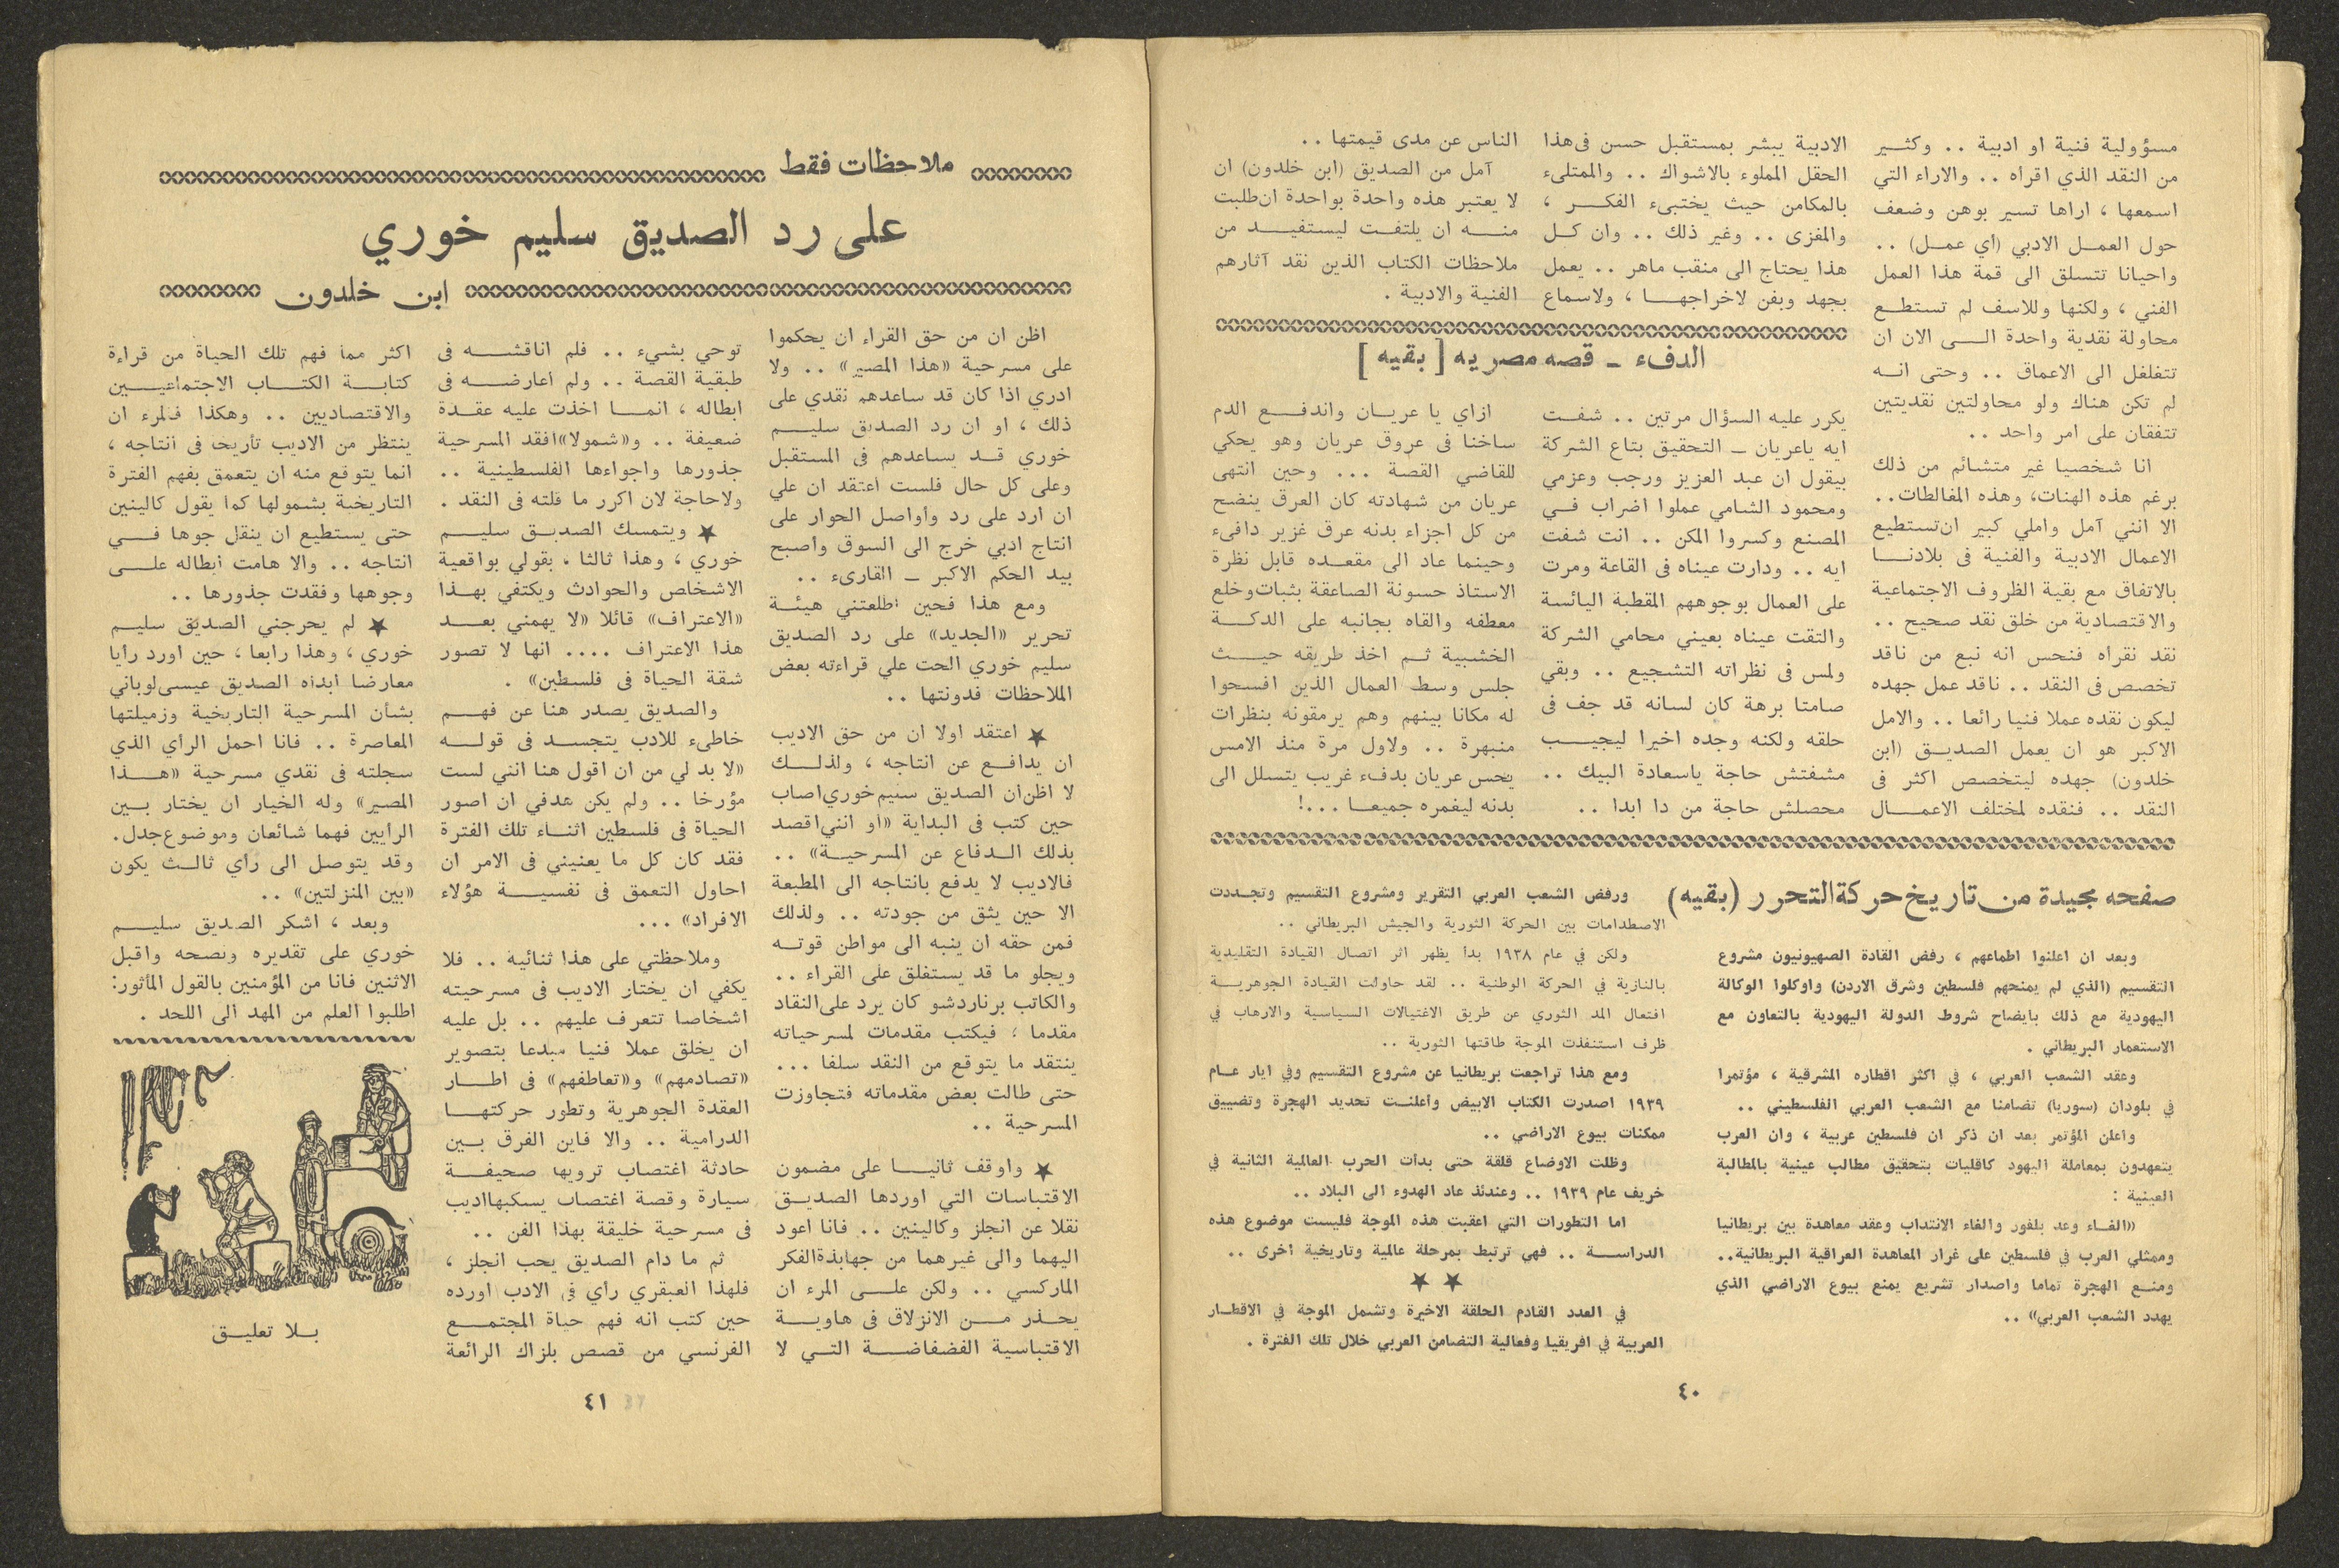 مسؤولية فنية او ادبية .. وكثير
من النقد الذي اقراه .. والاراء التي
اسمعها ، اراها تسير بوهن وضعف
حول العمل الادبي (اي عمل) ..
واحيانا تتسلق الى قمة هذا العمل
الفني ، ولكنها وللاسف لم تستطع
محاولة نقدية واحدة الى الان ان
تتغلغل الى الاعماق .. وحتى انه
لم تكن هناك ولو محاولتين نقديتين
تتفقان على امر واحد ..
انا شخصيا غير متشائم من ذلك
برغم هذه الهنات، وهذه المغالطات..
الا انني آمل واملي كبير ان تستطيع
الاعمال الادبية والفنية فى بلادنا
بالاتفاق مع بقية الظروف الاجتماعية
والاقتصادية من خلق نقد صحيح ..
نقد نقرأه فنحس انه نبع من ناقد
تخصص فى النقد .. ناقد عمل جهده
ليكون نقده عملا فنيا رائعا .. والامل
الاكبر هو ان يعمل الصديق (ابن
خلدون) جهده ليتخصص اكثر فى
النقد .. فنقده لمختلف الاعمال
الادبية يبشر بمستقبل حسن فى هذا
الحقل المملوء بالاشواك .. والممتلىء
بالمكامن حيث يختبىء الفكر ،
والمغزى .. وغير ذلك .. وان كل
هذا يحتاج الى منقب ماهر .. يعمل
بجهد وبفن لاخراجها ، ولاسماع
الناس عن مدى قيمتها ..
آمل من الصديق (ابن خلدون) ان
لا يعتبر هذه واحدة بواحدة ان طلبت
منه ان يلتفت ليستفيد من
ملاحظات الكتاب الذين نقد آثارهم
الفنية والادبية .
الدفء ـ قصه مصريه [ بقيه ]
يكرر عليه السؤال مرتين .. شفت
ايه ياعريان ـ التحقيق بتاع الشركة
بيقول ان عبد العزيز ورجب وعزمي
ومحمود الشامي عملوا اضراب في
المصنع وكسروا المكن .. انت شفت
ايه .. ودارت عيناه فى القاعة ومرت
على العمال بوجوههم المقطبة اليائسة
والتقت عيناه بعيني محامي الشركة
ولمس فى نظراته التشجيع .. وبقي
صامتا برهة كان لسانه قد جف فى
حلقه ولكنه وجده اخيرا ليجيب
مشفتش حاجة ياسعادة البيك ..
محصلش حاجة من دا ابدا ..
ازاي يا عريان واندفع الدم
ساخنا فى عروق عريان وهو يحكي
للقاضي القصة ... وحين انتهى
عريان من شهادته كان العرق ينضح
من كل اجزاء بدنه عرق غزير دافىء
وحينما عاد الى مقعده قابل نظرة
الاستاذ حسونة الصاعقة بثبات وخلع
معطفه والقاه بجانبه على الدكة
الخشبية ثم اخذ طريقه حيث
جلس وسط العمال الذين افسحوا
له مكانا بينهم وهم يرمقونه بنظرات
منبهرة .. ولاول مرة منذ الامس
يحس عريان بدفء غريب يتسلل الى
بدنه ليغمره جميعا ...!
صفحه مجيدة من تاريخ حركة التحرر (بقيه)
وبعد ان اعلنوا اطماعهم ، رفض القادة الصهيونيون مشروع
التقسيم (الذي لم يمنحهم فلسطين وشرق الاردن) واوكلوا الوكالة
اليهودية مع ذلك بايضاح شروط الدولة اليهودية بالتعاون مع
الاستعمار البريطاني .
وعقد الشعب العربي ، في اكثر اقطاره المشرقية ، مؤتمرا
في بلودان (سوريا) تضامنا مع الشعب العربي الفلسطيني ..
واعلن المؤتمر بعد ان ذكر ان فلسطين عربية ، وان العرب
يتعهدون بمعاملة اليهود كاقليات بتحقيق مطالب عينية بالمطالبة
العينية :
«الغاء وعد بلفور والغاء الانتداب وعقد معاهدة بين بريطانيا
وممثلي العرب في فلسطين على غرار المعاهدة العراقية البريطانية..
ومنع الهجرة تماما واصدار تشريع يمنع بيوع الاراضي الذي
يهدد الشعب العربي» ..
ورفض الشعب العربي التقرير ومشروع التقسيم وتجددت
الاصطدامات بين الحركة الثورية والجيش البريطاني ..
ولكن في عام ١٩٣٨ بدأ يظهر اثر اتصال القيادة التقليدية
بالنازية في الحركة الوطنية .. لقد حاولت القيادة الجوهرية
افتعال المد الثوري عن طريق الاغتيالات السياسية والارهاب في
ظرف استنفذت الموجة طاقتها الثورية ..
ومع هذا تراجعت بريطانيا عن مشروع التقسيم وفي ايار عام
١٩٣٩ اصدرت الكتاب الابيض واعلنت تحديد الهجرة وتضييق
ممكنات بيوع الاراضي ..
وظلت الاوضاع قلقة حتى بدأت الحرب العالمية الثانية في
خريف عام ١٩٣٩ .. وعندئذ عاد الهدوء الى البلاد ..
اما التطورات التي اعقبت هذه الموجة فليست موضوع هذه
الدراسة .. فهي ترتبط بمرحلة عالمية وتاريخية اخرى ..
★ ★
في العدد القادم الحلقة الاخيرة وتشمل الموجة في الاقطار
العربية في افريقيا وفعالية التضامن العربي خلال تلك الفترة .
٤٠
ملاحظات فقط
على رد الصديق سليم خوري
ابن خلدون
اظن ان من حق القراء ان يحكموا
على مسرحية «هذا المصير» .. ولا
ادري اذا كان قد ساعدهم نقدي على
ذلك ، او ان رد الصديق سليم
خوري قد يساعدهم فى المستقبل
وعلى كل حال فلست اعتقد ان علي
ان ارد على رد وأواصل الحوار على
انتاج ادبي خرج الى السوق واصبح
بيد الحكم الاكبر ـ القارىء ..
ومع هذا فحين اطلعتني هيئة
تحرير «الجديد» على رد الصديق
سليم خوري الحت علي قراءته بعض
الملاحظات فدونتها ..
★ اعتقد اولا ان من حق الاديب
ان يدافع عن انتاجه ، ولذلك
لا اظن ان الصديق سليم خوري اصاب
حين كتب فى البداية «او انني اقصد
بذلك الدفاع عن المسرحية» ..
فالاديب لا يدفع بانتاجه الى المطبعة
الا حين يثق من جودته .. ولذلك
فمن حقه ان ينبه الى مواطن قوته
ويجلو ما قد يستغلق على القراء ..
والكاتب برناردشو كان يرد على النقاد
مقدما ؛ فيكتب مقدمات لمسرحياته
ينتقد ما يتوقع من النقد سلفا ...
حتى طالت بعض مقدماته فتجاوزت
المسرحية ..
★ واوقف ثانيا على مضمون
الاقتباسات التي اوردها الصديق
نقلا عن انجلز وكالينين .. فانا اعود
اليهما والى غيرهما من جهابذة الفكر
الماركسي .. ولكن على المرء ان
يحذر من الانزلاق فى هاوية
الاقتباسية الفضفاضة التي لا
توحي بشيء .. فلم اناقشه فى
طبقية القصة .. ولم اعارضه فى
ابطاله ، انما اخذت عليه عقدة
ضعيفة .. و«شمولا» افقد المسرحية
جذورها واجواءها الفلسطينية ..
ولاحاجة لان اكرر ما قلته فى النقد .
★ ويتمسك الصديق سليم
خوري ، وهذا ثالثا ، بقولي بواقعية
الاشخاص والحوادث ويكتفي بهذا
«الاعتراف» قائلا «لا يهمني بعد
هذا الاعتراف .... انها لا تصور
شقة الحياة فى فلسطين» .
والصديق يصدر هنا عن فهم
خاطىء للادب يتجسد فى قوله
«لا بد لي من ان اقول هنا انني لست
مؤرخا .. ولم يكن هدفي ان اصور
الحياة فى فلسطين اثناء تلك الفترة
فقد كان كل ما يعنيني فى الامر ان
احاول التعمق فى نفسية هؤلاء
الافراد» ...
وملاحظتي على هذا ثنائية .. فلا
يكفي ان يختار الاديب فى مسرحيته
اشخاصا تتعرف عليهم .. بل عليه
ان يخلق عملا فنيا مبدعا بتصوير
«تصادمهم» و«تعاطفهم» فى اطار
العقدة الجوهرية وتطور حركتها
الدرامية .. والا فاين الفرق بين
حادثة اغتصاب ترويها صحيفة
سيارة وقصة اغتصاب يسكبها اديب
فى مسرحية خليقة بهذا الفن ..
ثم ما دام الصديق يحب انجلز ،
فلهذا العبقري رأي فى الادب اورده
حين كتب انه فهم حياة المجتمع
الفرنسي من قصص بلزاك الرائعة
اكثر مما فهم تلك الحياة من قراءة
كتابة الكتاب الاجتماعيين
والاقتصاديين .. وهكذا فالمرء ان
ينتظر من الاديب تأريخا فى انتاجه ،
انما يتوقع منه ان يتعمق بفهم الفترة
التاريخية بشمولها كما يقول كالينين
حتى يستطيع ان ينقل جوها في
انتاجه .. والا هامت ابطاله على
وجوهها وفقدت جذورها ..
★ لم يحرجني الصديق سليم
خوري ، وهذا رابعا ، حين اورد رايا
معارضا ابداه الصديق عيسى لوباني
بشأن المسرحية التاريخية وزميلتها
المعاصرة .. فانا احمل الرأي الذي
سجلته فى نقدي مسرحية «هذا
المصير» وله الخيار ان يختار بين
الرأيين فهما شائعان وموضوع جدل.
وقد يتوصل الى رأي ثالث يكون
«بين المنزلتين» ..
وبعد ، اشكر الصديق سليم
خوري على تقديره ونصحه واقبل
الاثنين فانا من المؤمنين بالقول المأثور:
اطلبوا العلم من المهد الى اللحد .
بلا تعليق
٤١